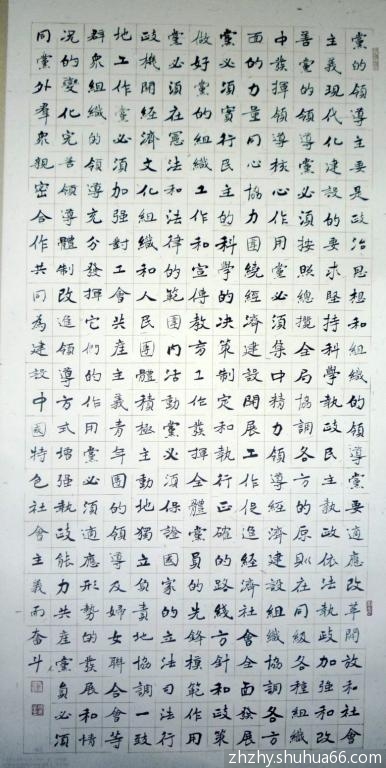 黨的領導主要是政治思想和組織的領導黨要適應改革開放和社會
主義現代化建設的要求堅持科學執政民主執政依法執政加強和改
善黨的領導黨必須按照總攬全局協調各方的原則在同級各種組織
中發揮領導核心作用黨必須集中精力領導經濟建設組織協調各方
面的力量同心協力圍繞經濟建設開展工作促進經濟社會全面發展
黨必須實行民主的科學的决策制定和執行正確的路綫方針和政策
做好黨的組織工作和宣傳教育工作發揮全體黨員的先鋒模範作用
黨必須在憲法和法律的範圍内活動黨必須保證國家的立法司法行
政機関經濟文化組織和人民團體積極主動地獨立負責地協調一致
地工作黨必須加强對工會共產主義青年團的領導及婦女聯合會等
群衆組織的領導充分發揮它們的作用黨必須適應形勢的發展和情
况的變化完善領導體制改進領導方式增强執政能力共產黨員必須
同黨外羣衆親密合作共同為建設中國特色社會主義而奮斗
zhzhy.shuhua66.com